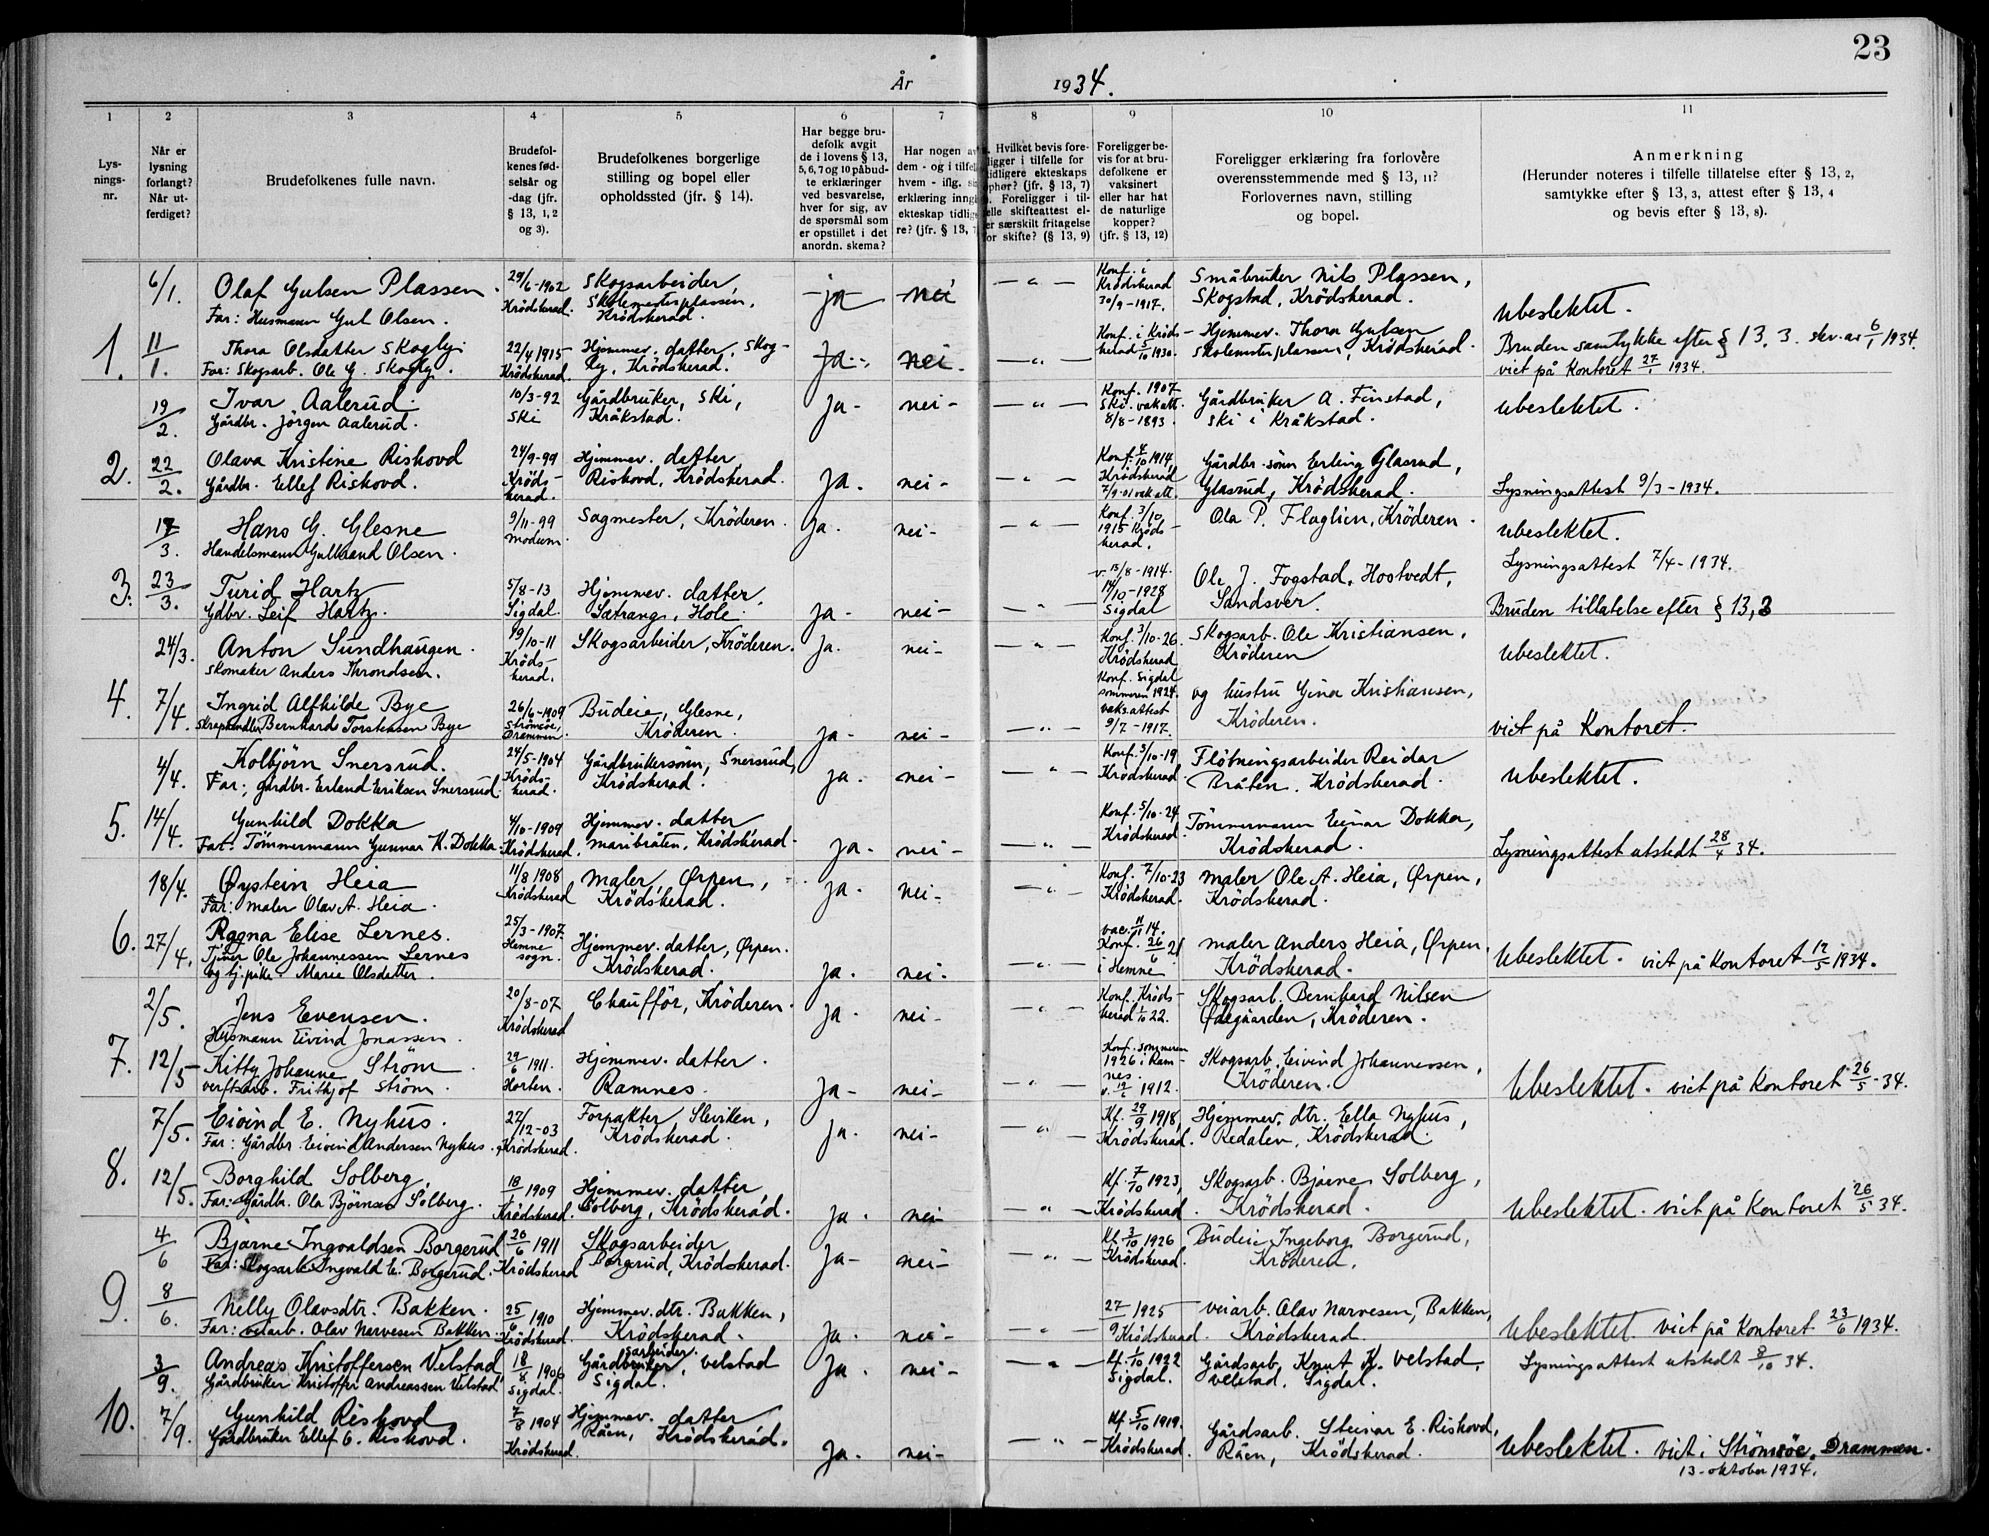 23
År 1934.
1
2
3
4
5
6
7
8
9
10
11
Lys-
nings-
nr.
Når er
lysning
forlangt?
Når ut-
ferdiget?
Brudefolkenes fulle navn.
Brudefol-
kenes fød-
selsår og
-dag (jfr.
§ 13, 1, 2
og 3).
Brudefolkenes borgerlige
stilling og bopel eller
opholdssted (jfr. § 14).
Har begge bru-
defolk avgit
de i lovens § 13,
5, 6, 7 og 10 påbud-
te erklæringer
ved besvarelse,
hver for sig, av
de spørsmål som
er opstillet i det
anordn. skema?
Har nogen av
dem - og i tilfelle
hvem - iflg.
erklæring inngått
ekteskap tidlige-
re? (jfr. § 13, 7)
Hvilket bevis fore-
ligger i tilfelle for
tidligere ekteskaps
ophør? (jfr. § 13, 7)
Foreligger i til-
felle skifteattest el-
er særskilt fritagelse
for skifte? (§ 13, 9)
Foreligger be-
vis for at bru-
defolkene er
vaksinert
eller har hat
de naturlige
kopper?
(jfr. § 13, 12)
Foreligger erklæring fra forlovere
overensstemmende med § 13, 11?
Forlovernes navn, stilling
og bopel.
Anmerkning
(Herunder noteres i tilfelle tillatelse efter § 13, 2,
samtykke efter § 13, 3, attest efter § 13, 4
og bevis efter § 13, 8).
6/1.
Olaf Gulsen Plassen.
Far: Husmann Gul Olsen.
29/6-1902
Krödsherad.
Skogsarbeider,
Skolemesterplassen,
Krödsherad.
ja
nei
— " —
Konf. i
Krödsherad
30/9-1917.
Småbruker Nils Plassen,
Skogstad, Krödsherad.
Ubeslektet.
1.
11/1.
Thora Olsdatter Skogly.
Far: Skogsarb. Ole G. Skogly.
22/4 1915
Krödsherad.
Hjemmev. datter, Skog-
ly, Krödsherad.
ja.
nei.
— " —
Konf. i Kröds-
herad 5/10 1930.
Hjemmev. Thora Gulsen
Skolemesterplassen, Krödsherad.
Bruden samtykke efter § 13. 3. skr. av 6/1 1934.
viet på Kontoret 27/1 1934.
19/2.
Ivar Aalerud.
Gårdbr. Jörgen Aalerud.
10/3-92
Ski
Gårdbruker, Ski,
Kråkstad.
ja-
nei-
— " —
Konf. 1907
Ski. vak att.
8/8-1893.
Gårdbruker A. Finstad,
Ski i Kråkstad.
Ubeslektet.
2.
22/2.
Olava Kristine Riskovd
Gårdbr. Ellef Riskovd.
24/9-99
Kröds-
herad.
Hjemmev. datter
Riskovd, Krödsherad.
ja.
nei-
— " —
Konf. 4/10 1914,
Krödsherad
7/9-01 vak att.
Gårdbr. sönn Erling Glasrud,
Glasrud, Krödsherad.
Lysningsattest 9/3-1934.
17/3.
Hans G. Glesne
Handelsmann Gulbrand Olsen.
9/11-99
Modum.
Sagmester, Kröderen.
ja.
nei-
— " —
Konf. 3/10
1915 Kröds-
herad.
Ola P. Flaglien, Kröderen.
Ubeslektet.
Lysningsattest 7/4-1934.
3.
23/3.
Turid Hartz
Gdbr. Leif Hartz.
5/8-13
Sigdal.
Hjemmev. datter,
Sætrang, Hole.
ja-
nei-
— " —
v. 15/8-1914.
14/10-1928
Sigdal
Ole J. Fogstad, Hostvedt,
Sandsver.
Bruden tillatelse efter § 13,2
24/3.
Anton Sundhaugen.
Skomaker Anders Throndsen.
19/10-11
Kröds-
herad.
Skogsarbeider, Kröderen.
ja.
nei-
— " —
Konf. 3/10-26
Krödsherad
Skogsarb. Ole Kristiansen,
Kröderen
Ubeslektet.
4.
7/4.
Ingrid Alfhilde Bye
Skraphandler Bernhard Torstensen Bye
26/6-1909
Strömsöe,
Drammen.
Budeie, Glesne,
Kröderen.
ja-
nei-
— " —
Konf. Sigdal
sommeren 1924.
vaks. attest
9/7-1917.
og hustru Gina Kristiansen,
Kröderen.
viet på Kontoret.
4/4.
Kolbjörn Snersrud.
Far: gårdbr. Erland Eriksen Snersrud.
24/5-1904
Kröds-
herad.
Gårdbrukersönn, Snersrud,
Krödsherad.
ja.
nei-
— " —
Konf. 5/10-19
Krödsherad.
Flötningsarbeider Reidar
Bråten. Krödsherad.
Ubeslektet.
5.
14/4.
Gunhild Dokka
Far: Tömmermann Gunnar K. Dokka.
4/10-1909
Krödsherad.
Hjemmev. datter
Maribråten, Krödsherad.
ja-
nei-
— " —
Konf. 5/10-24
Krödsherad.
Tömmermann Einar Dokka,
Krödsherad.
Lysningsattest utstedt 28/4 34.
18/4.
Øystein Heia
Far: Maler Olav A. Heia.
11/8 1908
Krödsherad
Maler, Ørpen,
Krödsherad.
ja.
nei-
— " —
Konf. 7/10-23
Krödsherad.
Maler Ole A. Heia, Ørpen,
Krödsherad.
6.
27/4.
Ragna Elise Lernes.
Tjener Ole Johannessen Lernes
og tj.pike. Marie Olsdatter.
25/3-1907.
Hemne
sogn.
Hjemmev. datter, Ørpen.
Krödsherad.
ja.
nei-
— " —
Konf. 26/6 21
i Hemne
Maler Anders Heia, Ørpen,
Krödsherad.
Ubeslektet. viet på Kontoret 12/5 1934.
2/5.
Jens Evensen.
Husmann Eivind Jonassen.
20/8-07
Krödsherad
Chaufför, Kröderen.
ja.
nei-
— " —
Konf. Kröds-
herad 1/10 22.
Skogsarb. Bernhard Nilsen
Ødegaarden, Kröderen.
7.
12/5
Kitty Johanne Ström
verftsarb. Frithjof Ström.
29/6 1911.
Horten.
Hjemmev. datter.
Ramnes.
ja-
nei-
— " —
Konf. sommeren
1926 i Ram-
nes.
Skogsarb. Eivind Johannessen,
Kröderen.
Ubeslektet. viet på Kontoret 26/5-34.
7/5.
Eivind E. Nyhus.
Far: Gårdbr Eivind Andersen Nyhus.
27/12-03
Krödsherad.
Forpakter Sleviken,
Krödsherad.
ja.
nei-
— " —
Kf. 29/9 1918,
Krödsherad.
Hjemmev. dtr. Ella Nyhus,
Redalen, Krödsherad.
8.
12/5.
Borghild Solberg.
Far: Gårdbr. Ola Björnsen Solberg.
Krödsherad.
Hjemmev. datter
Solberg, Krödsherad.
ja.
nei-
— " —
Kf. 7/10 1923,
Krödsherad.
Skogsarb. Bjarne Solberg,
Krödsherad.
Ubeslektet. viet på Kontoret 26/5 34.
4/6
Bjarne Ingvaldsen Borgerud
Far: Skogsarb Ingvald E. Borgerud.
26/6 1911
Krödsherad
Skogsarbeider
Borgerud, Krödsherad.
ja-
nei-
— " —
Kf. 3/10 1926
Krödsherad.
Budeie Ingeborg Borgerud,
Kröderen.
9.
8/6.
Nelly Olavsdtr. Bakken.
Far: veiarb. Olav Narvesen Bakken.
25/6 1910
Krödsherad.
Hjemmev. dtr. Bakken,
Krödsherad.
ja.
nei-
— " —
27/9 1925
Krödsherad.
veiarb. Olav Narvesen, Bakken,
Krödsherad.
Ubeslektet viet på Kontoret 23/6 1934.
3/9.
Andreas Kristoffersen Velstad
Gårdbruker Kristoffer Andreassen Velstad
18/8 1906
Sigdal.
arbeider.
Gårdbruker, Velstad
Sigdal.
ja.
nei-
— " —
Kf. 1/10 1922
Sigdal.
Gårdsarb. Knut K. Velstad,
Velstad. Sigdal.
Lysningsattest utstedt 8/10 34.
10.
7/9.
Gunhild Riskovd
Gårdbruker Ellef G. Riskovd.
7/8 1904
Krödsherad.
Hjemmev. datter
Råen, Krödsherad.
ja.
nei-
— " —
Kf. 5/10 1919.
Krödsherad.
Gårdsarb. Steinar E. Riskovd,
Råen, Krödsherad.
Ubeslektet. viet i Strömsöe, Drammen.
13-oktober 1934.